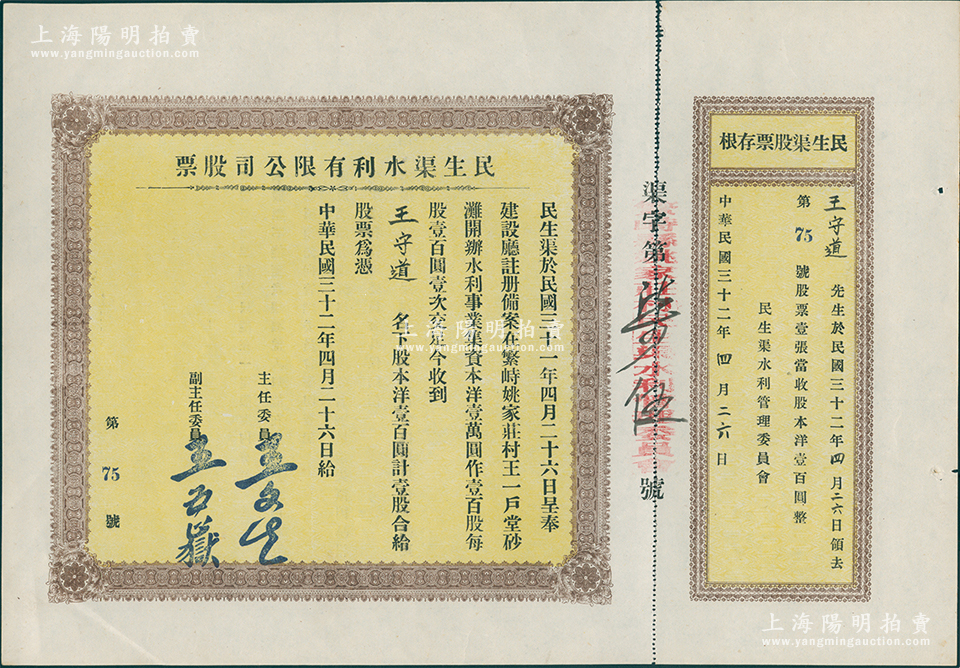 上海陽明拍賣
www.yangmingauction.com
民生渠股票存根
王守道 先生於民國三十二年四月二六日領去
第75號股票壹張當收股本洋壹百圓整
民生渠水利管理委員會
中華民國三十二年四月二六日
渠字第柒拾伍號
民生渠水利有限公司股票
民生渠於民國三十一年四月二十六日呈奉
建設廳註册備案在繁峙姚家莊村王一戶堂砂
灘開辦水利事業集資本洋壹萬圓作壹百股每
股壹百圓壹次交足今收到
王守道 名下股本洋壹百圓計壹股合給
股票爲憑
中華民國三十二年四月二十六日給
主任委員
副主任委員 王五嶽
第75號
上海陽明拍賣
www.yangmingauction.com
上海陽明拍賣
www.yangmingauction.com